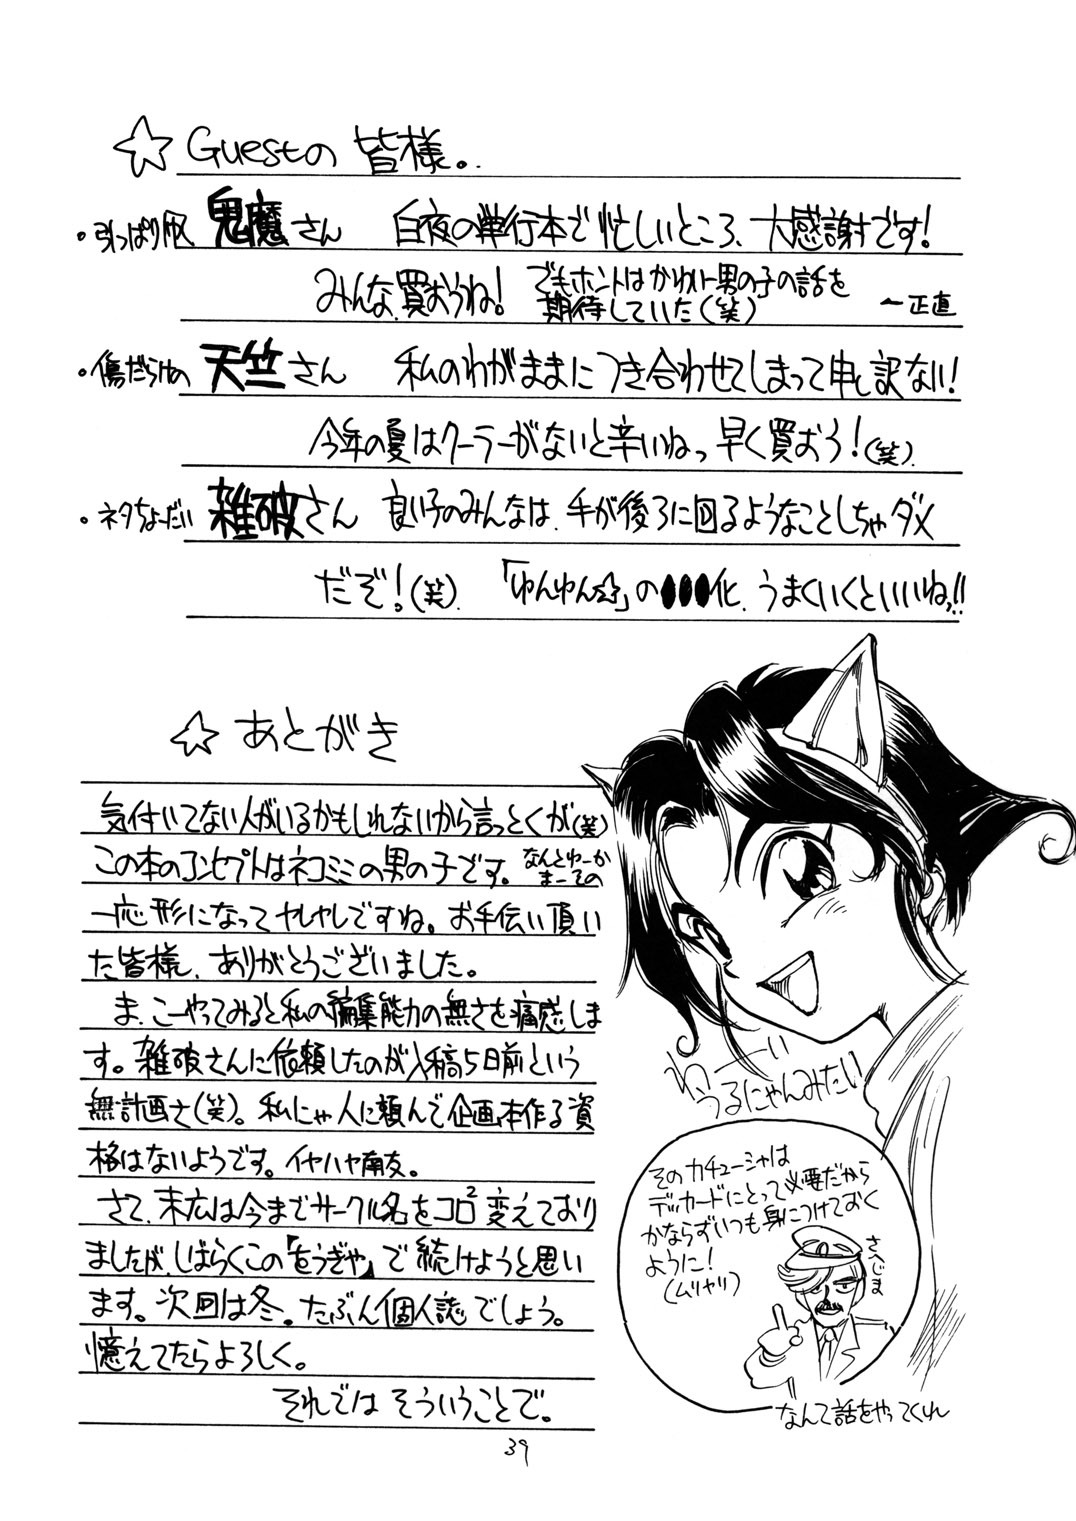 ☆Guestの皆様。
・引っぱり凧 鬼魔さん 白夜の単行本で忙しいところ、大感謝です!
みんな、買おうね! でもホントはかわいー男の子の話を
期待していた(笑) 〜正直
・傷だらけの 天竺さん 私のわがままにつき合わせてしまって申し訳ない!
今年の夏はクーラーがないと辛いねっ 早く買おう!(笑)
・ネタちょーだい 雑破さん 良い子のみんなは、手が後ろに回るようなことしちゃダメ
だぞ!(笑) 「ゆんゆん☆」の●●●化、うまくいくといいねっ!!
☆あとがき
気付いてない人がいるかもしれないから言っとくが(笑)
この本のコンセプトはネコミミの男の子です。なんとゆーか
まーその
一応形になってヤレヤレですね。お手伝い頂い
た皆様、ありがとうございました。
ま、こーやってみると私の編集能力の無さを痛感しま
す。雑破さんに依頼したのが入稿5日前という
無計画さ(笑)。私にゃ人に頼んで企画本作る資
格はないようです。イヤハヤ南友。
さて、末広は今までサークル名をコロ2変えており
ましたが、しばらくこの「をうぎや」で続けようと思い
ます。次回は冬。たぶん個人誌でしょう。
憶えてたらよろしく。
それでは そういうことで。
わーい
うるにゃんみたい
そのカチューシャは
デッカードにとって必要だから
かならずいつも身につけておく
ように!
(ムリヤリ)
さえじま
なんて話をやってくれ
39